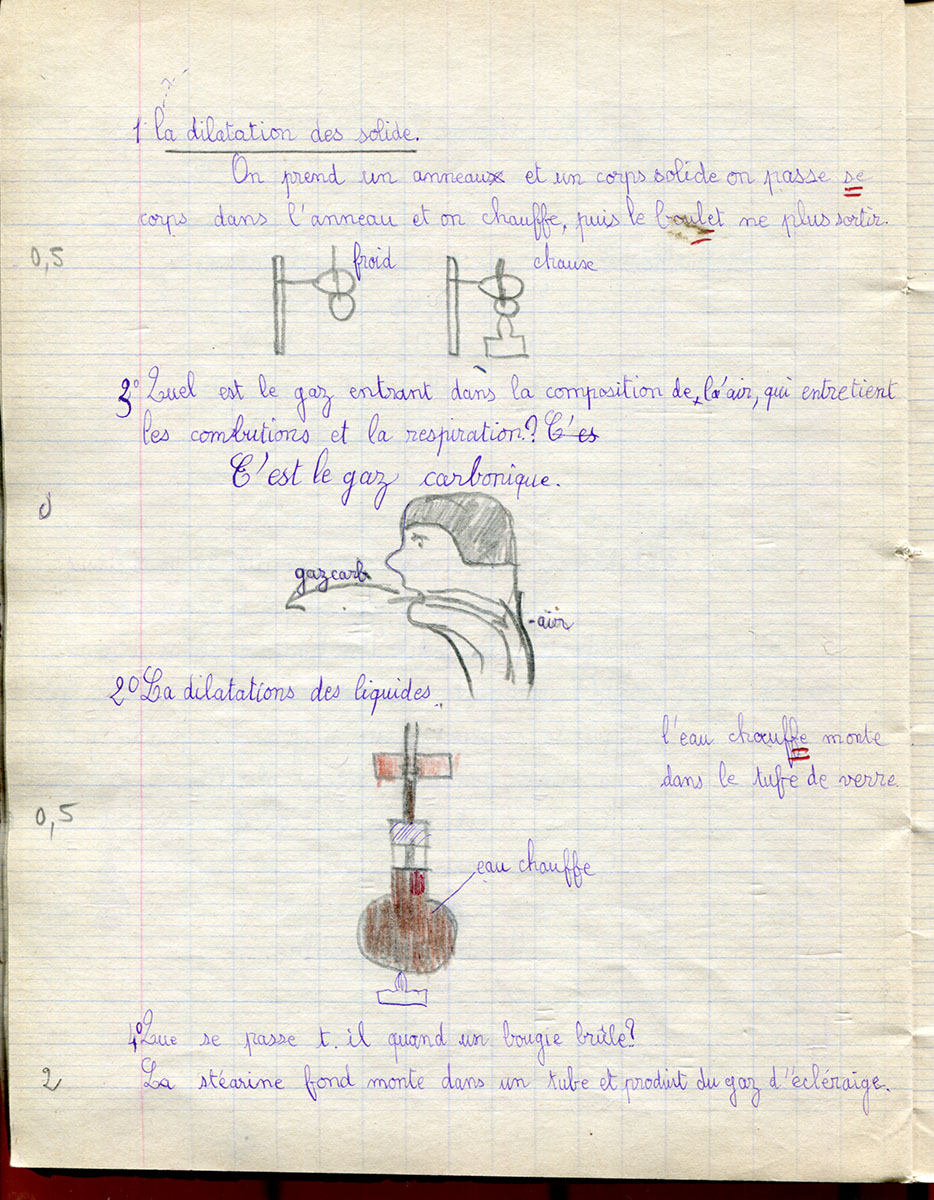 1 la dilatation des solide.
On prend un anneaux et un corps solide on passe se
corps dans l'anneau et on chauffe, puis le boulet ne plus sortir.
0,5
froid
chause
3° Quel est le gaz entrant dans la composition de l'air, qui entretient
les combutions et la respiration? C'es
C'est le gaz carbonique.
0
gaz carb
-air
2° La dilatations des liquides.
l'eau chauffe monte
dans le tufe de verre.
0,5
eau chauffe
4° Que se passe t. il quand un bougie brûle?
2
La stéarine fond monte dans un tube et produit du gaz d'écléraige.